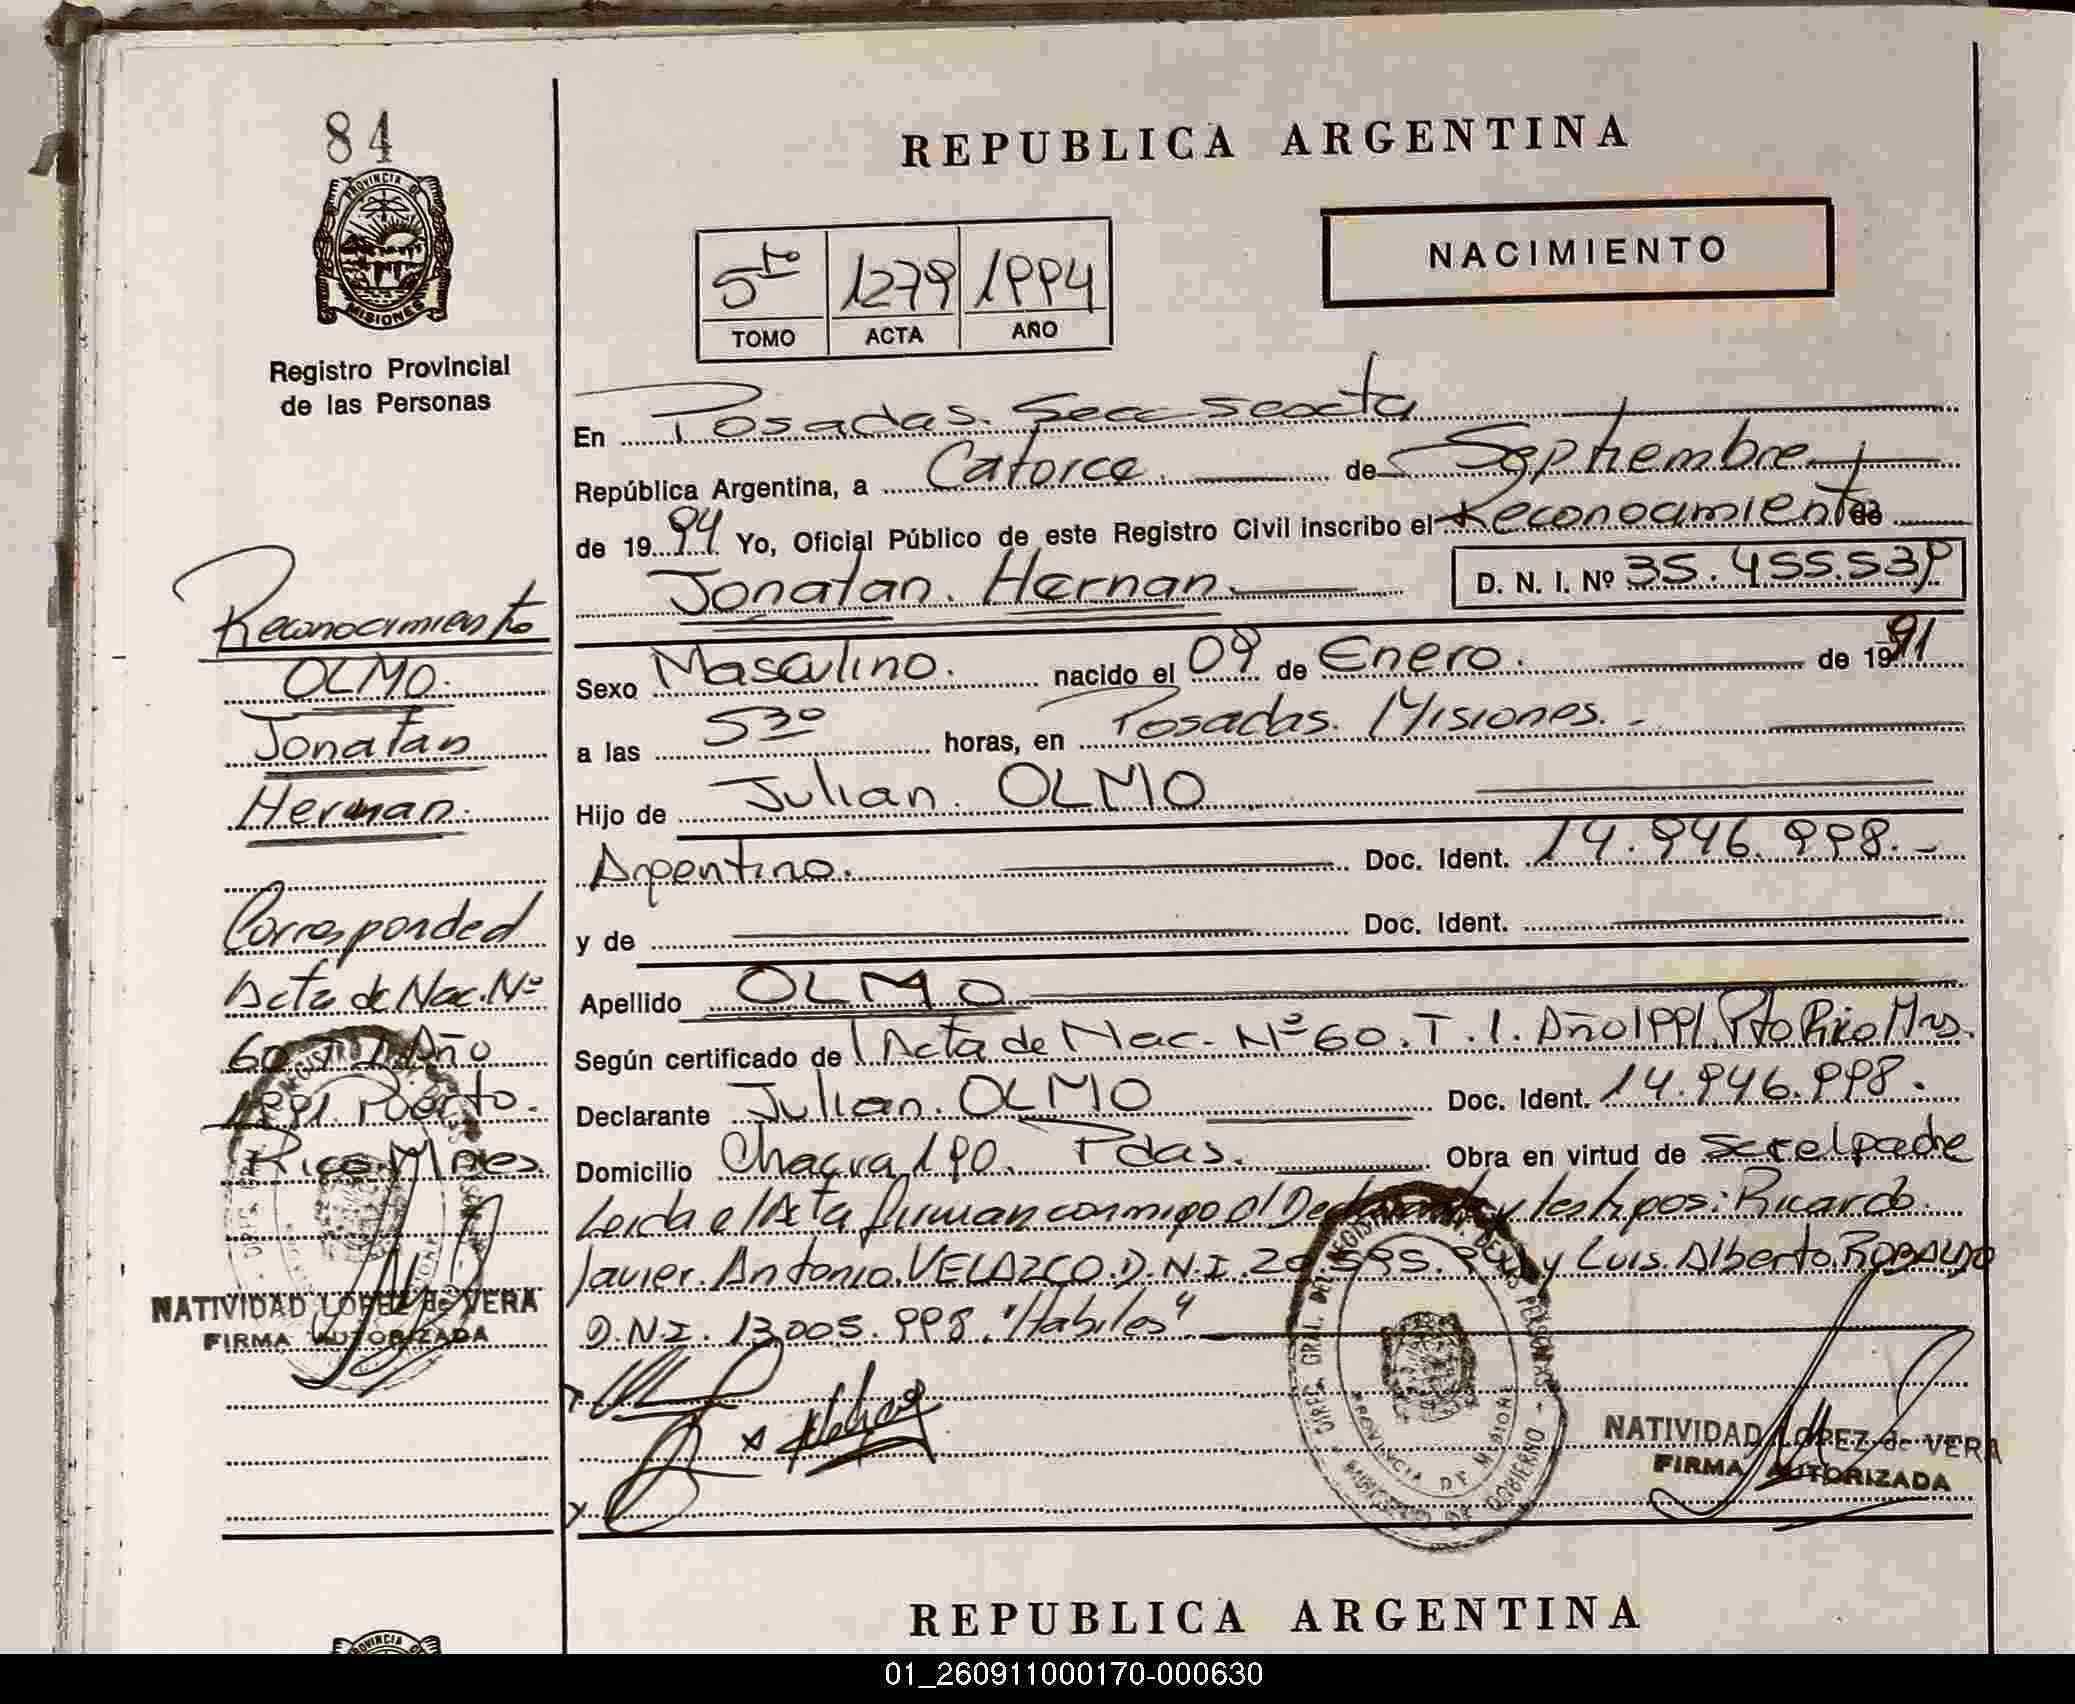 84
PROVINCIA DE
MISIONES
Registro Provincial
de las Personas
REPUBLICA ARGENTINA
NACIMIENTO
5to 1279 1994
TOMO ACTA AÑO
En Posadas. Secc sexta
República Argentina, a Catorce. de Septiembre
de 1994 Yo, Oficial Público de este Registro Civil inscribo el Reconocimiento de
Jonatan. Hernan D. N. I. Nº 35.455.539
Sexo Masculino. nacido el 09 de Enero. de 1991
a las 530 horas, en Posadas. Misiones.-
Hijo de Julian. OLMO
Argentino. Doc. Ident. 14.946.998.-
y de Doc. Ident.
Apellido OLMO
Según certificado de Acta de Nac. Nº 60. T. 1. Año 1991. Pto Rico Mns.
Declarante Julian. OLMO Doc. Ident. 14.946.998.
Domicilio Chacra 190. Pdas. Obra en virtud de ser el padre
Leida el Acta firman conmigo el Declarante y testigos: Ricardo.
Javier. Antonio. VELAZCO. D.N.I. y Luis. Alberto. ROBALDO
D.N.I. 13.005.998. "Habiles"
Reconocimiento
OLMO.
Jonatan
Hernan.
Corresponded
Acta de Nac. Nº
60 T 1 Año
1991. Puerto.
Rico. Mnes.
NATIVIDAD LOPEZ de VERA
FIRMA AUTORIZADA
DIREC. GRAL. DEL REGISTRO DE LAS PERSONAS
PROVINCIA DE MISIONES
MINISTERIO DE GOBIERNO
NATIVIDAD LOPEZ de VERA
FIRMA AUTORIZADA
REPUBLICA ARGENTINA
PROVINCIA DE
01_260911000170-000630